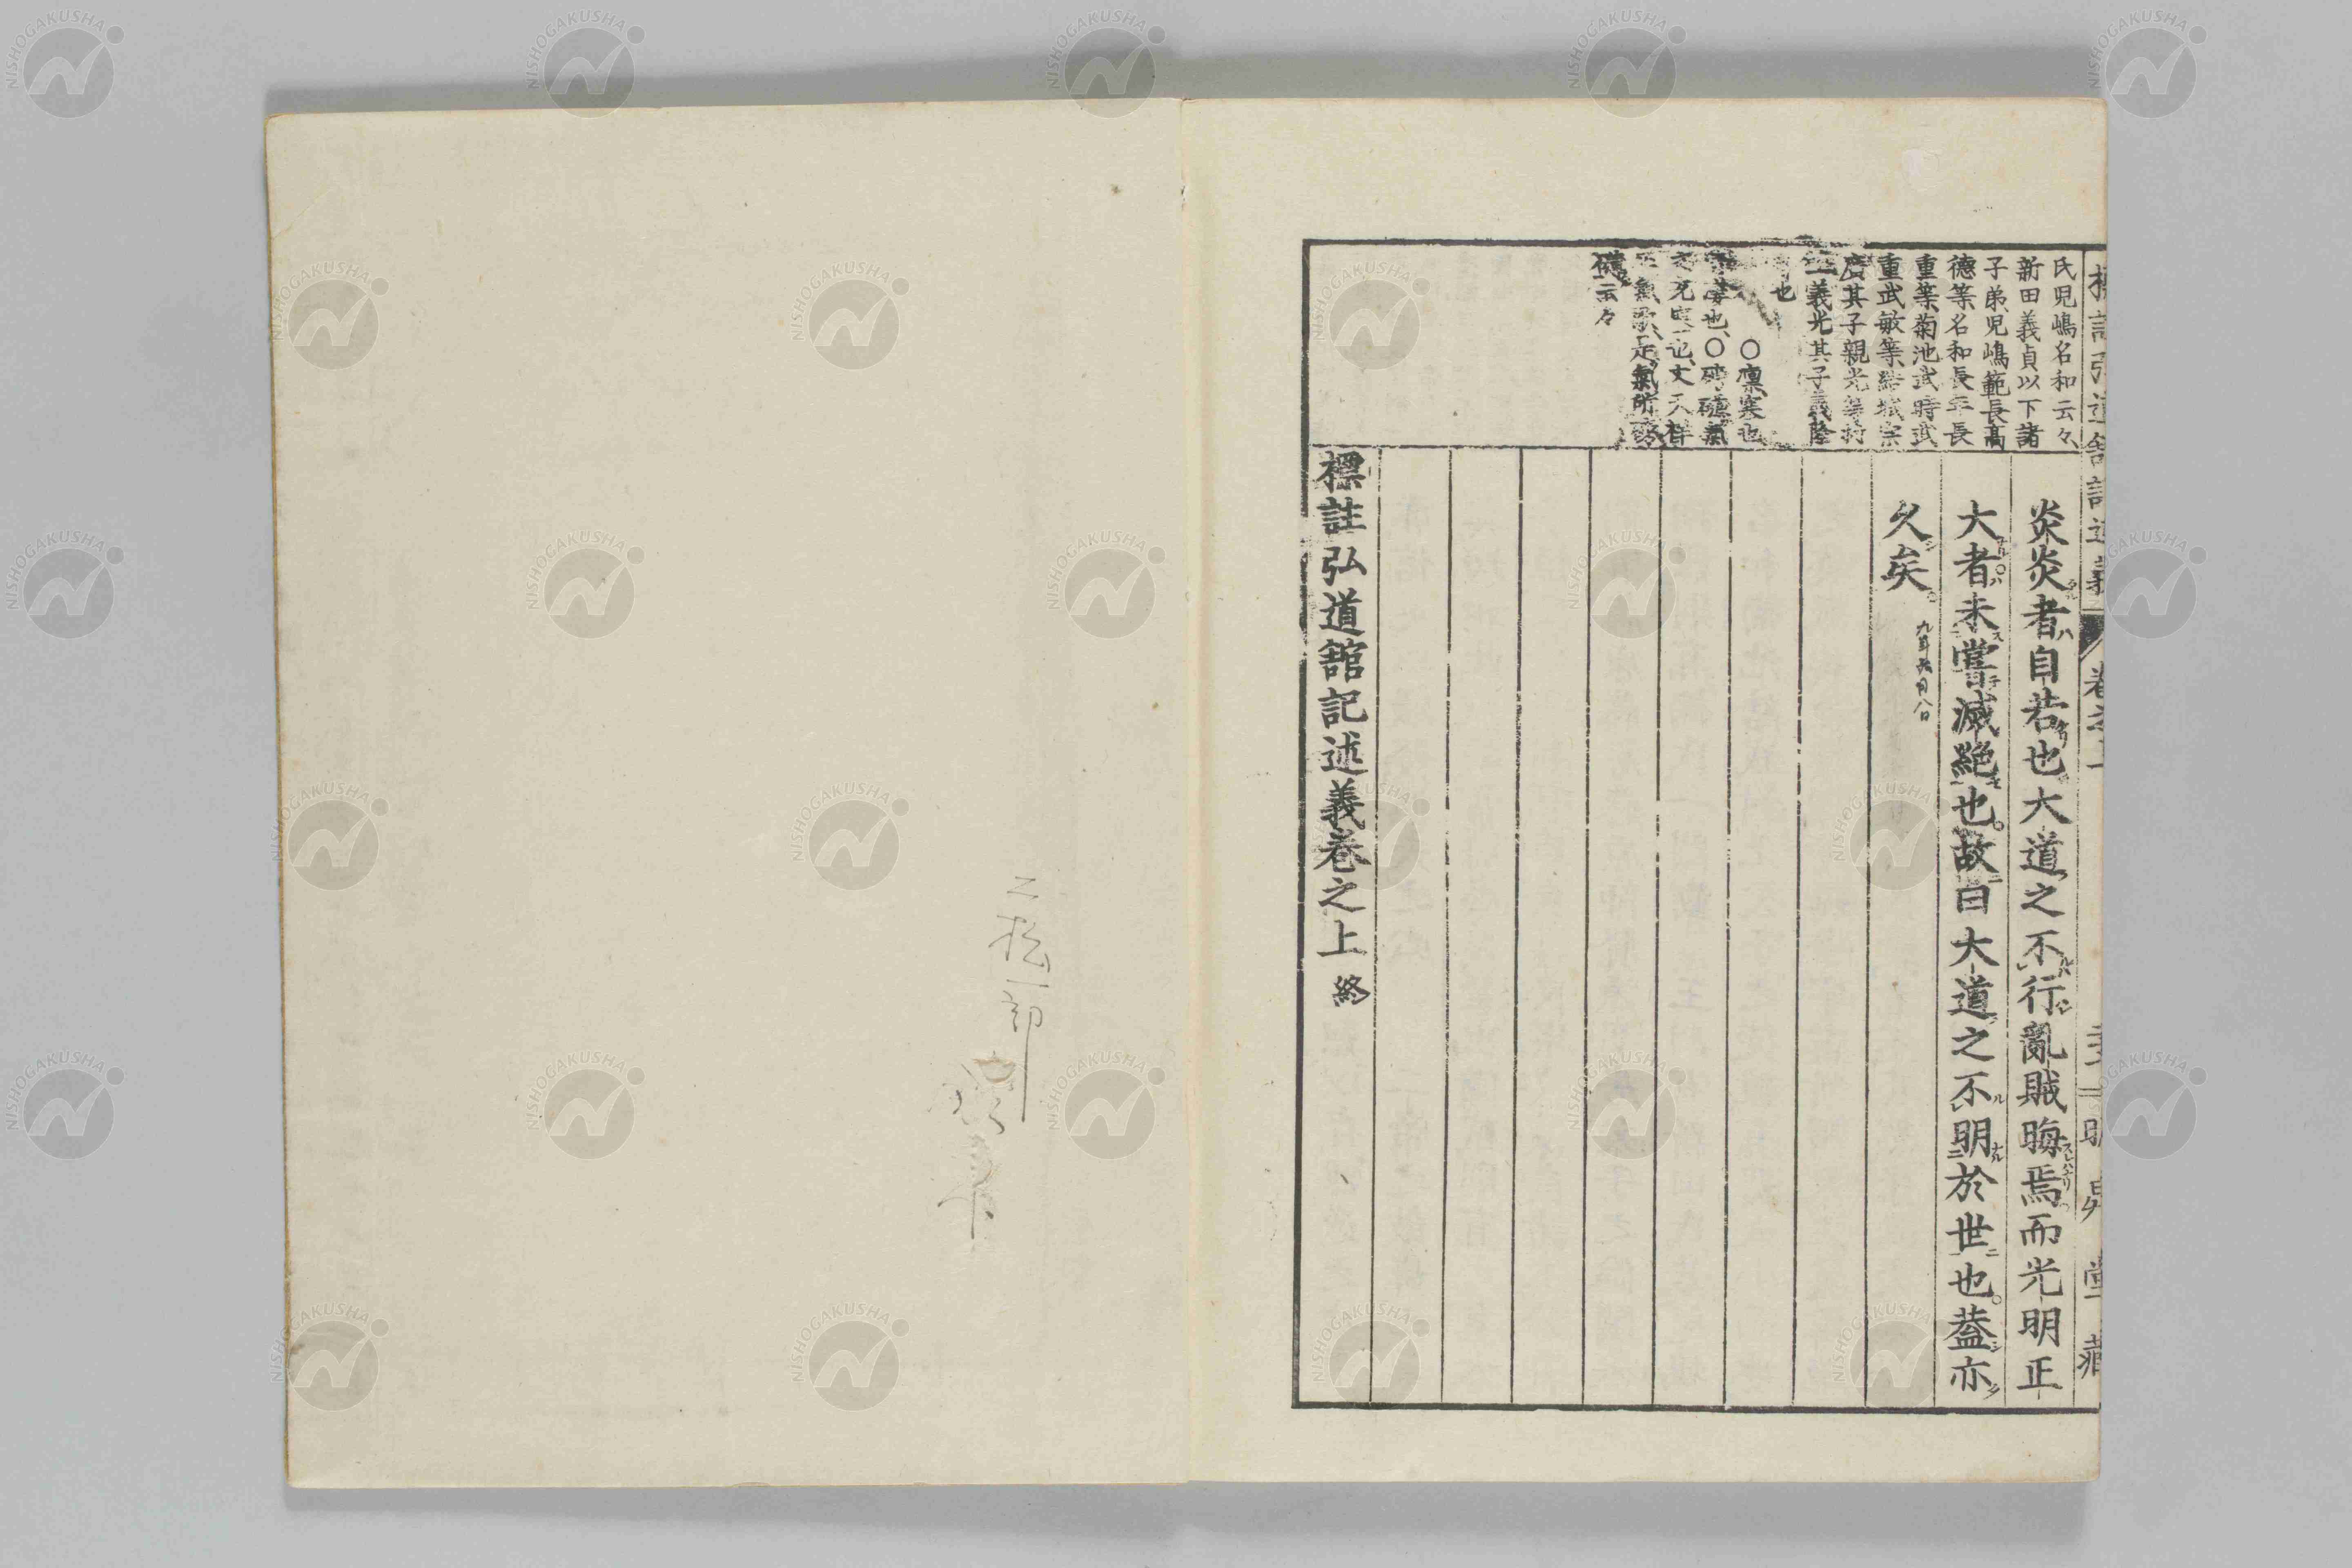 炎炎者自若也大道之不行亂賊晦焉而光明正
大者未嘗滅絶也故曰大道之不明於世也葢亦
久矣
九年六月八日
標註弘道館記述義卷之上 終
氏児嶋名和云々
新田義貞以下諸
子弟児嶋範長高
德等名和長年長
重等菊池武時武
重武敏等結城宗
廣其子親光等村
上義光其子義隆
也
○凛寒也
也○磅礴氣
充塞也文天祥
正氣歌是氣所磅
礴云々
標註弘道館記述義
卷之上
鼎堂藏
NISHOGAKUSHA